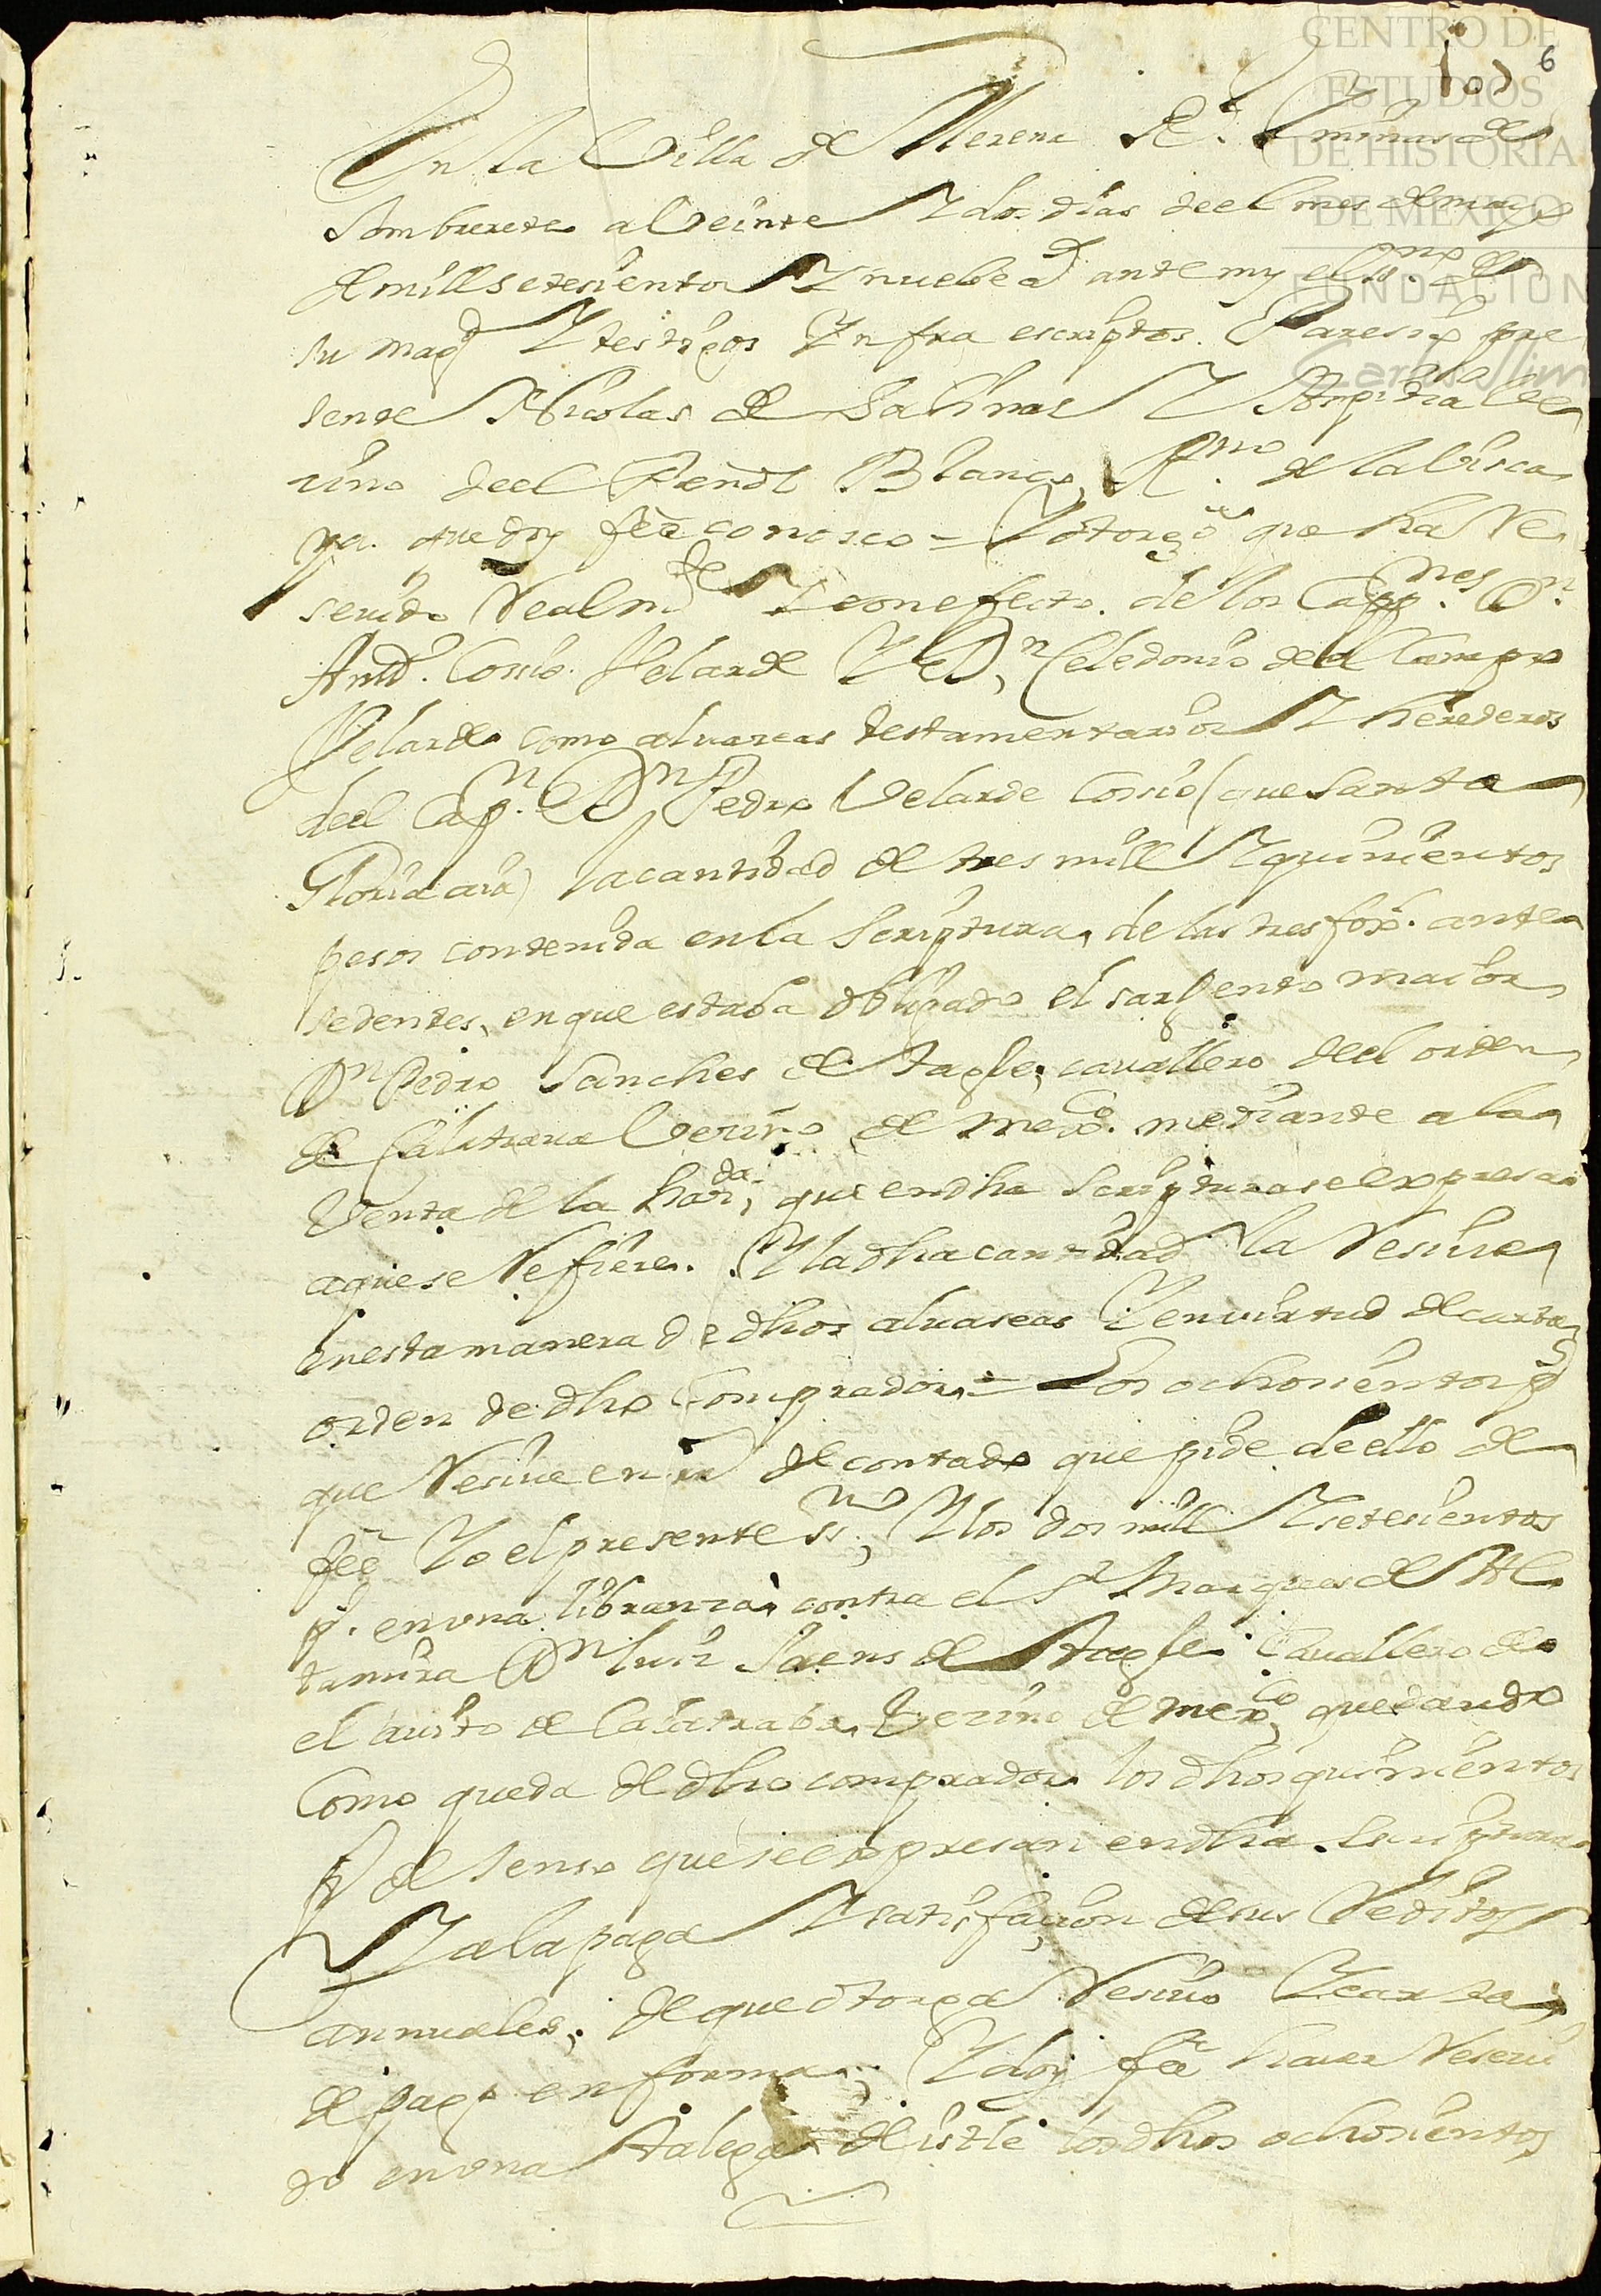 CENTRO DE
ESTUDIOS
DE HISTORIA
DE MEXICO
FUNDACION
Carlos Slim
6
En la Villa de Llerena Rl. Y minas de
Sombrerete a Veinte Y dos dias deel mes de mayo
de mill setesientos Y nuebe ad ante my el ssno de
su magd Y testigos Ynfra escriptos. Paresio pre
sente Nicolas de Salinas Y
uino deel Penol Blanco, Rno de la Uisca
ya. que doy fee conosco = Y otorgo que ha Re
seuido Realmte Y con efecto. de los Cappnes Dn.
Anto. Cossio Velarde Y Dn, Celedonio deel Campo
Velarde como aluaceas testamentarios Y herederos
deel Capn. Dn Pedro Velarde Cossio (que Santa
Gloria aia) la cantidad de tres mill Y quinientos
pesos contenida en la Scriptura, de las tres fox. ante
sedentes, en que estaba obligado el sargento maior
Dn Pedro Sanches de Tagle, cauallero deel orden
de Calatraua Vecino de Mexco. mediante a la
Venta de la hazda, que en dha Scriptura se expresa
a que se Refiere. Y la dha cantidad la Resiue
En esta manera de dhos aluaseas Y en uirtud de carta
orden de dho Comprador = Los ochosientos ps
que Resiue en rs de contado que pide de ello de
fee Yo el presente ssno, Y los dos mill Y setesientos
ps. en una libranza contra el Sr Marques de Al
tamira Dn Luis Saens de Tagle Cauallero de
el auito de Calatraba, Vecino de Mexco, quedando
Como queda de dho comprador los dhos quinientos
ps de senso que se expresan en dha Scriptura
Y a la paga Y satisfaçion de sus Reditos
annuales; de que otorga Resiuo Y carta
de pago en forma; Y doy fee hauer Reseui
do en una talega de istle los dhos ochosientos